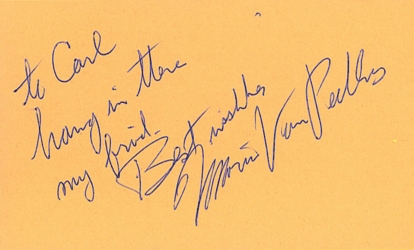 to Carl
hang in there
my friend.
Best wishes
Mario Van Peebles